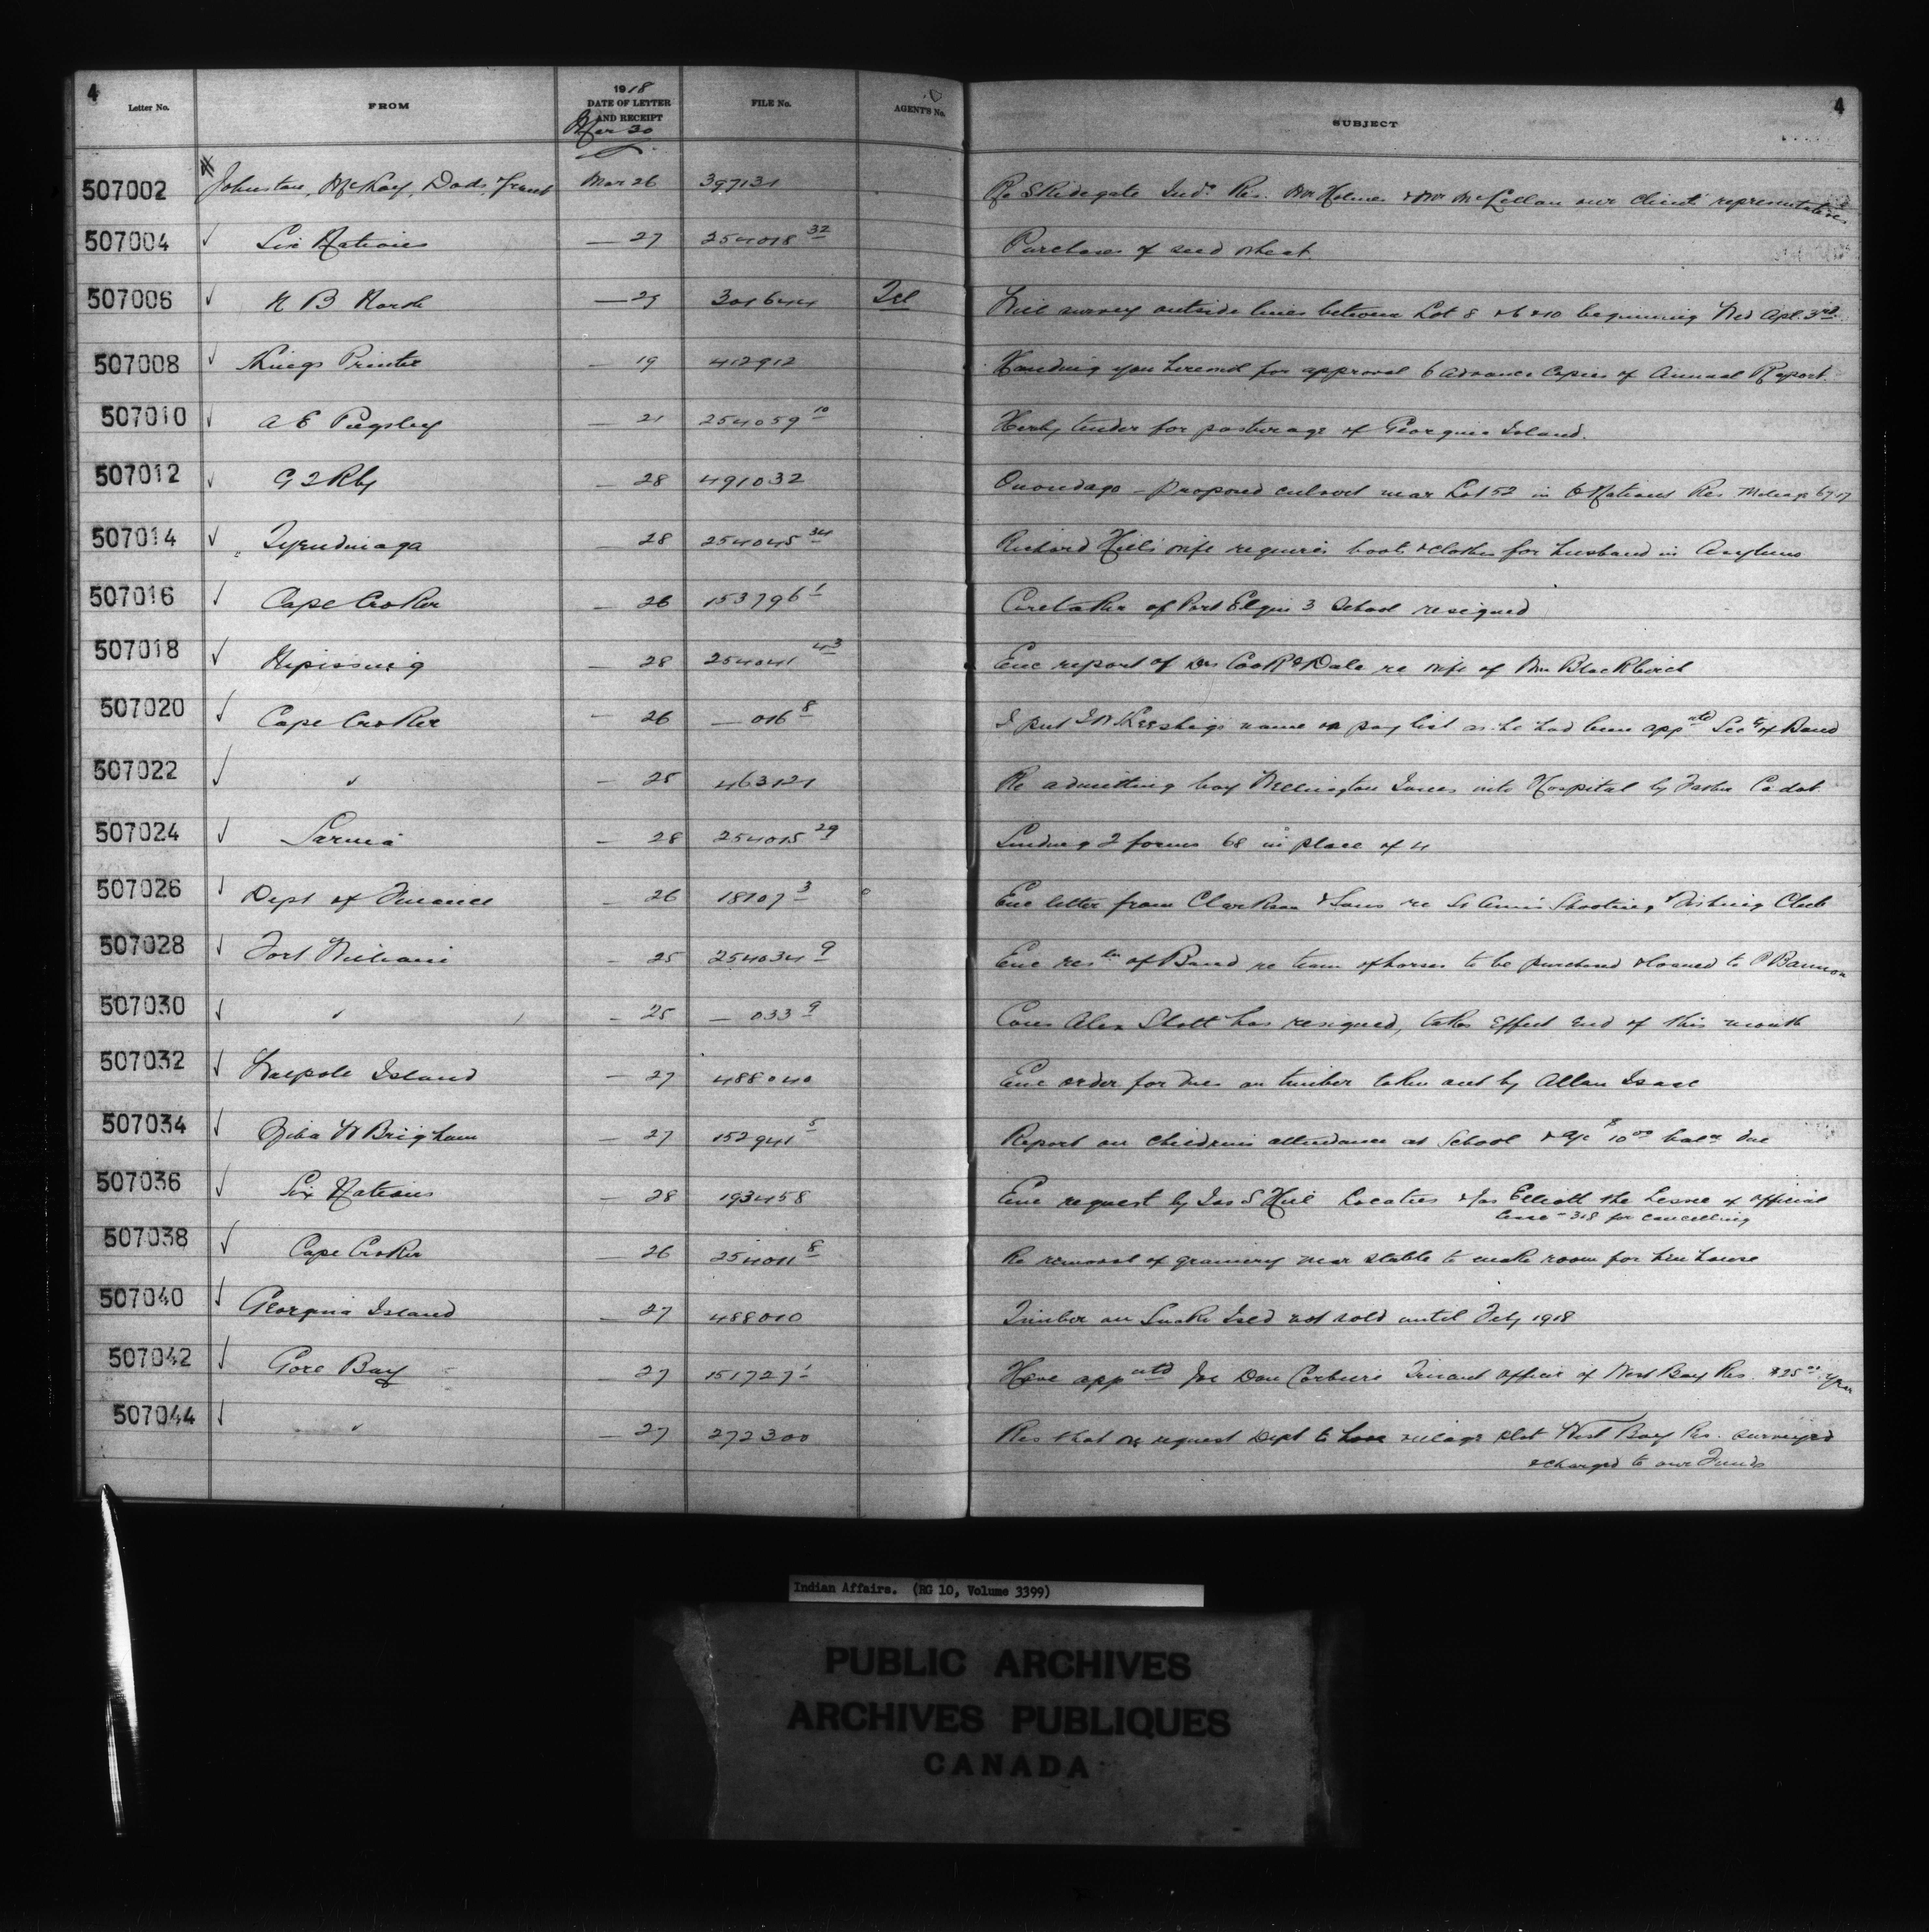 4 4
Letter No. FROM 1918 DATE OF LETTER AND RECEIPT FILE No. AGENT'S No. SUBJECT
Mar 30
507002 Johnston, McKay, Dods & Grant Mar 26 397131 Re Skidegate Inds Res. Mr Holmes & Mr McLellan our clients representatives
507004 ✓ Six Nations — 27 254018 32 Purchases of seed wheat
507006 ✓ — 29 301644 Tel Will survey outside lines between Lot 8 & 6 & 10 beginning Wed Apl. 3rd
507008 ✓ Kings Printer — 19 412912 Handing you herewith for approval 6 advance Copies of Annual Report.
507010 ✓ A E Pugsley — 21 254059 10 Hereby tender for pasturage of Georgina Island.
507012 ✓ G T Rly — 28 491032 Onondaga – Proposed culvert near Lot 52 in 6 Nations Res. Mileage 67.17
507014 ✓ Tyendinaga — 28 254045 34 Richard Hill's wife requires boots & clothes for husband in Asylum
507016 ✓ Cape Croker — 26 153796 1 Caretaker of Port Elgin 3 School resigned
507018 ✓ Nipissing — 28 254041 43 Enc report of Drs Cook & Dale re wife of Wm Blackbird
507020 ✓ Cape Croker — 26 — 016 8 I put name on pay list as he had been appntd Secty of Band
507022 ✓ " — 25 463121 Re admitting boy Wellington Jones into Hospital by Father Cadot.
507024 ✓ Sarnia — 28 254015 29 Sending 2 forms 68 in place of 4
507026 ✓ Dept of Finance — 26 18107 3 Enc letter from Clarkson & Sons re St Annes Shooting & Fishing Club
507028 ✓ Fort William — 25 254034 9 Enc restn of Band re team of horses to be purchased & loaned to P Bannon
507030 ✓ " — 25 — 033 9 Cons Alex Stott has resigned, takes effect end of this month
507032 ✓ Walpole Island — 27 488040 Enc order for dues on timber taken out by Allan Isaac
507034 ✓ Ziba W Brigham — 27 152941 5 Report on children's attendance at School & a/c $10 00 balce due
507036 ✓ Six Nations — 28 193458 Enc request by Jas S Hill Locatee & Jas Elliott the Lessee of official
lease – 318 for cancelling
507038 ✓ Cape Croker — 26 254011 8 Re removal of granery near stable to make room for hen house
507040 ✓ Georgina Island — 27 488010 Timber on Snake Isld not sold until Feby 1918
507042 ✓ Gore Bay — 27 151727 1 Have appntd Joe Dan Corbiere Truant officer of West Bay Res. $25 00 year
507044 ✓ " — 27 272300 Res that we request Dept to have village plot West Bay Res. surveyed
& charged to our Funds
Indian Affairs. (RG 10, Volume 3399)
PUBLIC ARCHIVES
ARCHIVES PUBLIQUES
CANADA